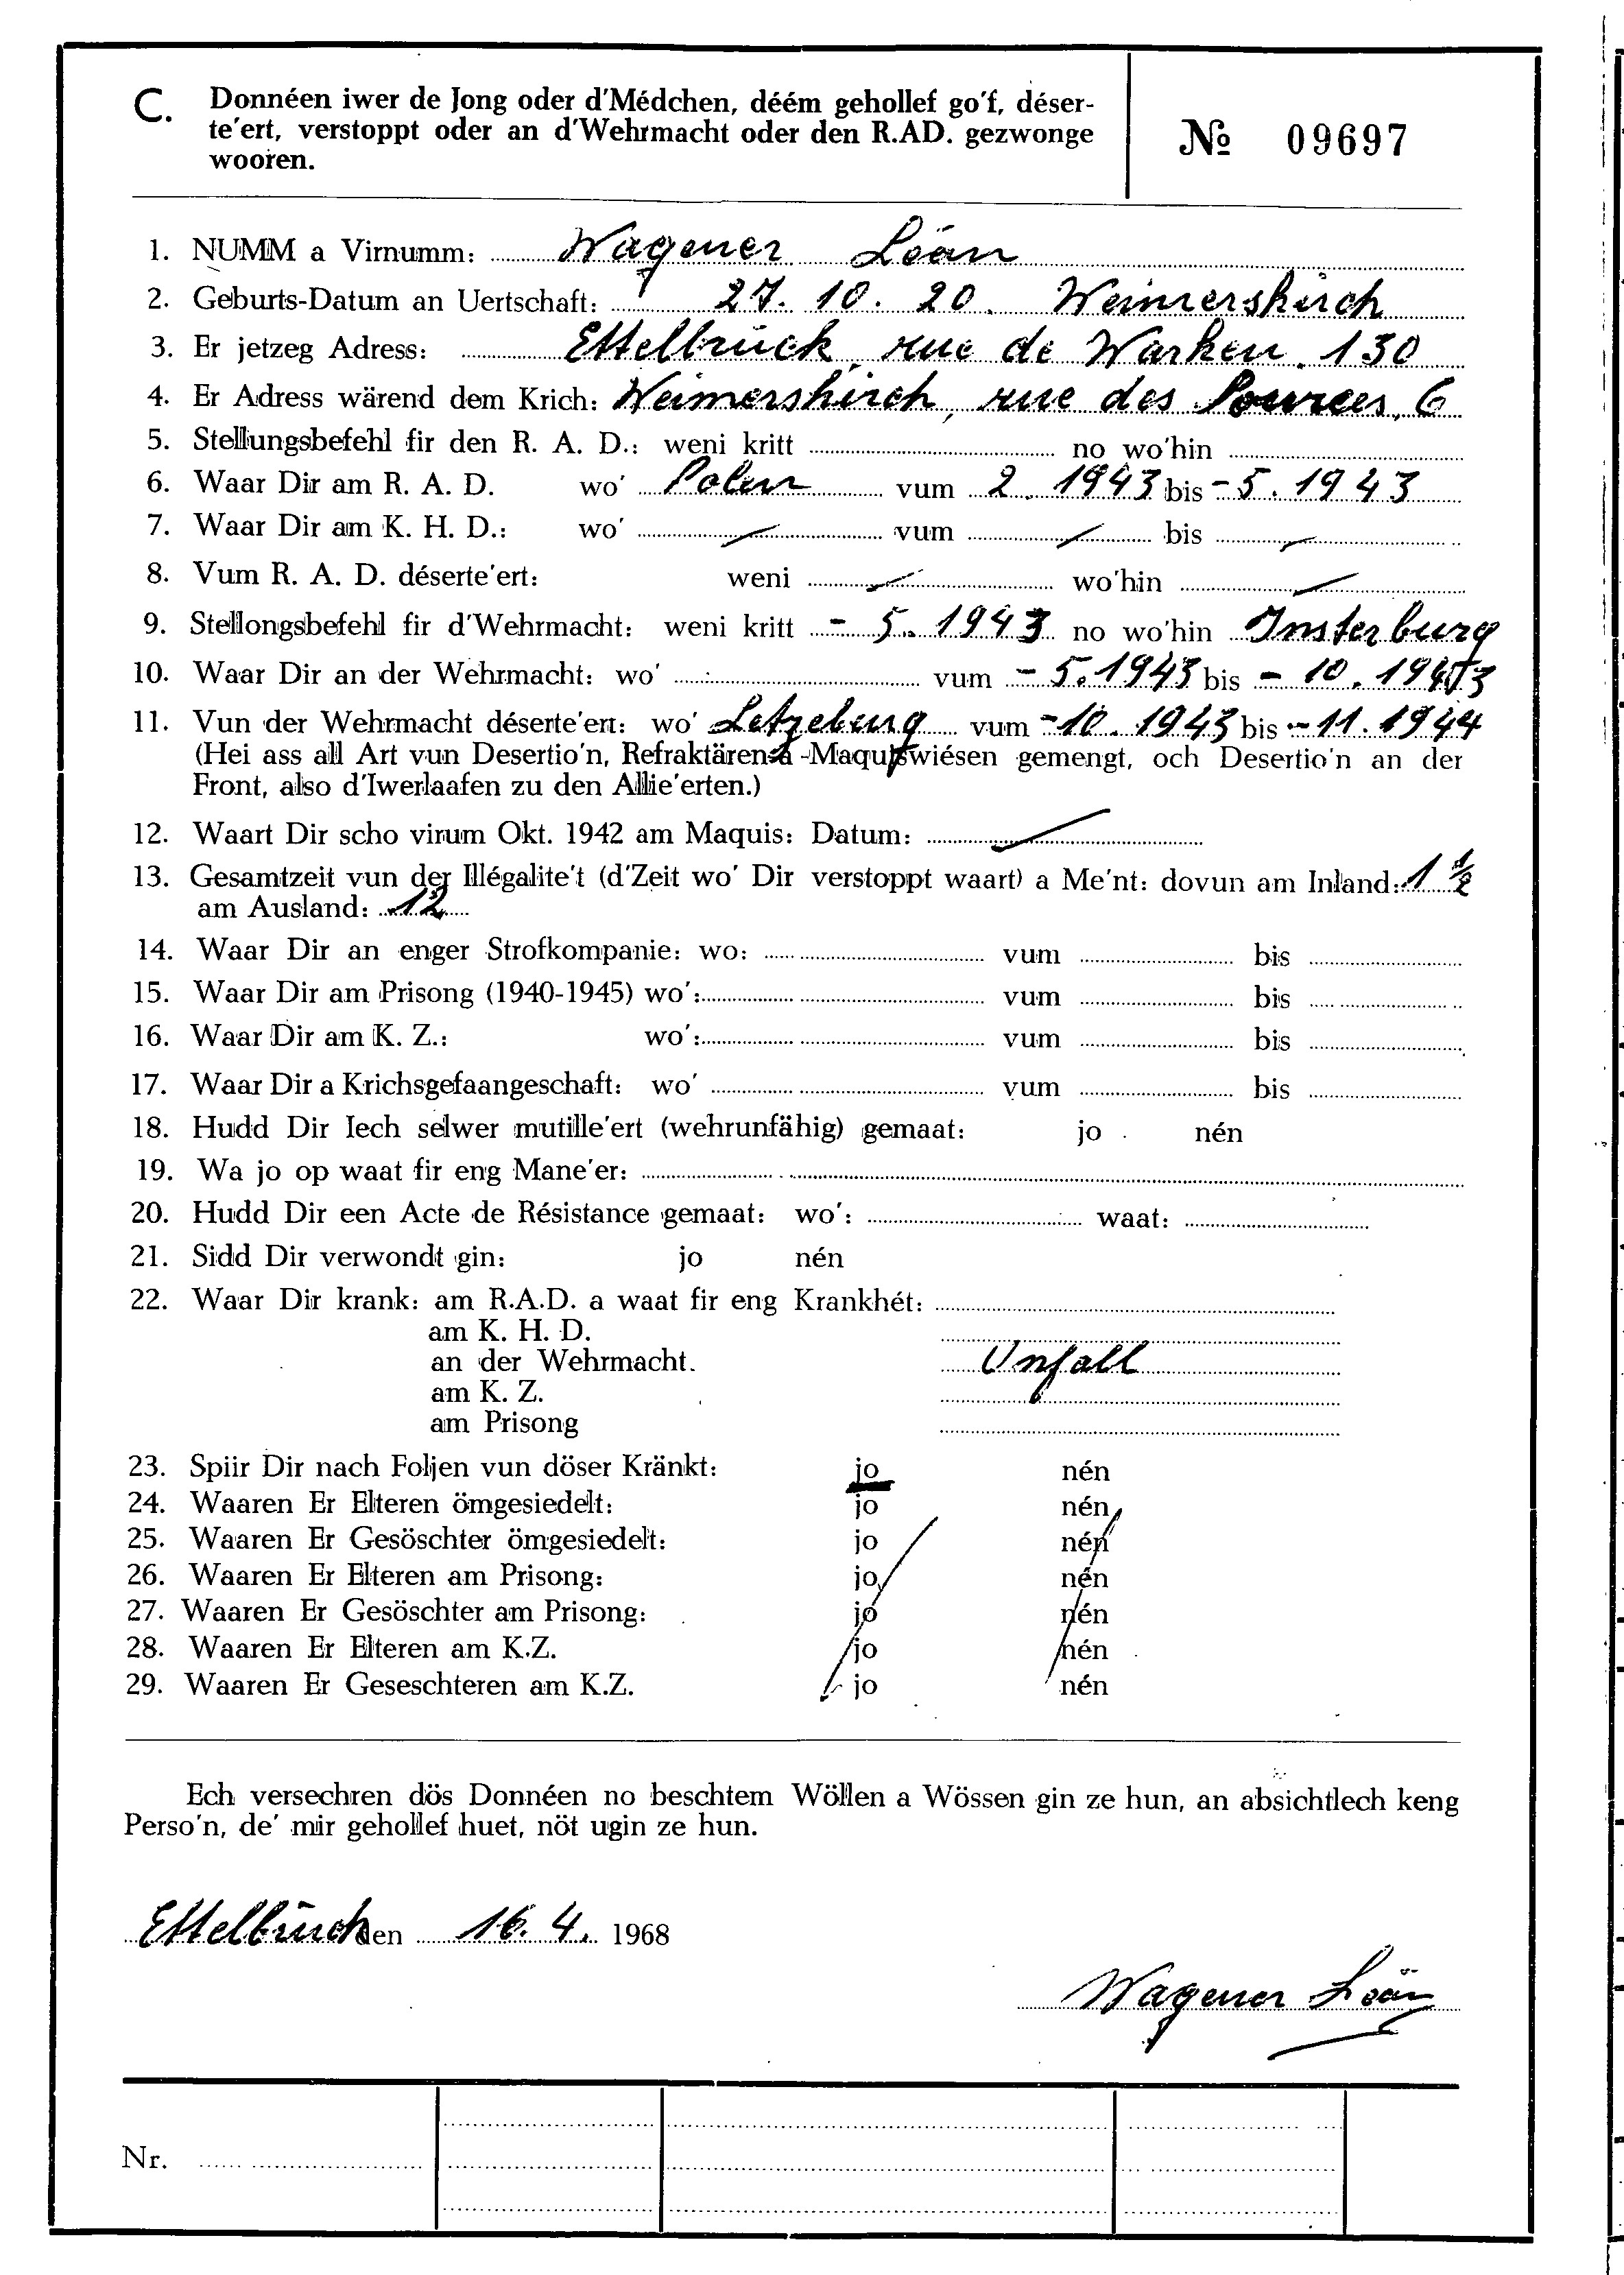 C. Donnéen iwer de Jong oder d'Médchen, déém gehollef go'f, déser-
te'ert, verstoppt oder an d'Wehrmacht oder den R.AD. gezwonge
wooren.
№ 09697
1. NUMM a Virnumm: Wagener Léān
2. Geburts-Datum an Uertschaft: 27. 10. 20. Weimerskirch
3. Er jetzeg Adress: Ettelbrück, rue de Warken, 130
4. Er Adress wärend dem Krich: Weimerskirch, rue des Sources, 6
5. Stellungsbefehl fir den R. A. D.: weni kritt no wo'hin
6. Waar Dir am R. A. D. wo' Polen vum 2. 1943 bis - 5. 1943
7. Waar Dir am K. H. D.: wo' vum bis
8. Vum R. A. D. déserte'ert: weni wo'hin
9. Stellongsbefehl fir d'Wehrmacht: weni kritt - 5. 1943 no wo'hin Insterburg
10. Waar Dir an der Wehrmacht: wo' vum - 5. 1943 bis - 10. 1943
11. Vun der Wehrmacht déserte'ert: wo' Letzeburg vum - 10. 1943 bis - 11. 1944
(Hei ass all Art vun Desertio'n, Refraktären a -Maquiswiésen gemengt, och Desertio'n an der
Front, also d'Iwerlaafen zu den Allie'erten.)
12. Waart Dir scho virum Okt. 1942 am Maquis: Datum:
13. Gesamtzeit vun der Illégalite't (d'Zeit wo' Dir verstoppt waart) a Me'nt: dovun am Inland: 1 ½
am Ausland: 12
14. Waar Dir an enger Strofkompanie: wo: vum bis
15. Waar Dir am Prisong (1940-1945) wo': vum bis
16. Waar Dir am K. Z.: wo': vum bis
17. Waar Dir a Krichsgefaangeschaft: wo' vum bis
18. Hudd Dir Iech selwer mutille'ert (wehrunfähig) gemaat: jo nén
19. Wa jo op waat fir eng Mane'er:
20. Hudd Dir een Acte de Résistance gemaat: wo': waat:
21. Sidd Dir verwondt gin: jo nén
22. Waar Dir krank: am R.A.D. a waat fir eng Krankhét:
am K. H. D.
an der Wehrmacht. Unfall
am K. Z.
am Prisong
23. Spiir Dir nach Foljen vun döser Kränkt: jo nén
24. Waaren Er Elteren ömgesiedelt: jo nén
25. Waaren Er Gesöschter ömgesiedelt: jo nén
26. Waaren Er Elteren am Prisong: jo nén
27. Waaren Er Gesöschter am Prisong: jo nén
28. Waaren Er Elteren am K.Z. jo nén
29. Waaren Er Geseschteren am K.Z. jo nén
Ech versechren dös Donnéen no beschtem Wöllen a Wössen gin ze hun, an absichtlech keng
Perso'n, de' mir gehollef huet, nöt ugin ze hun.
Ettelbrück den 16. 4. 1968
Wagener Léān
Nr.